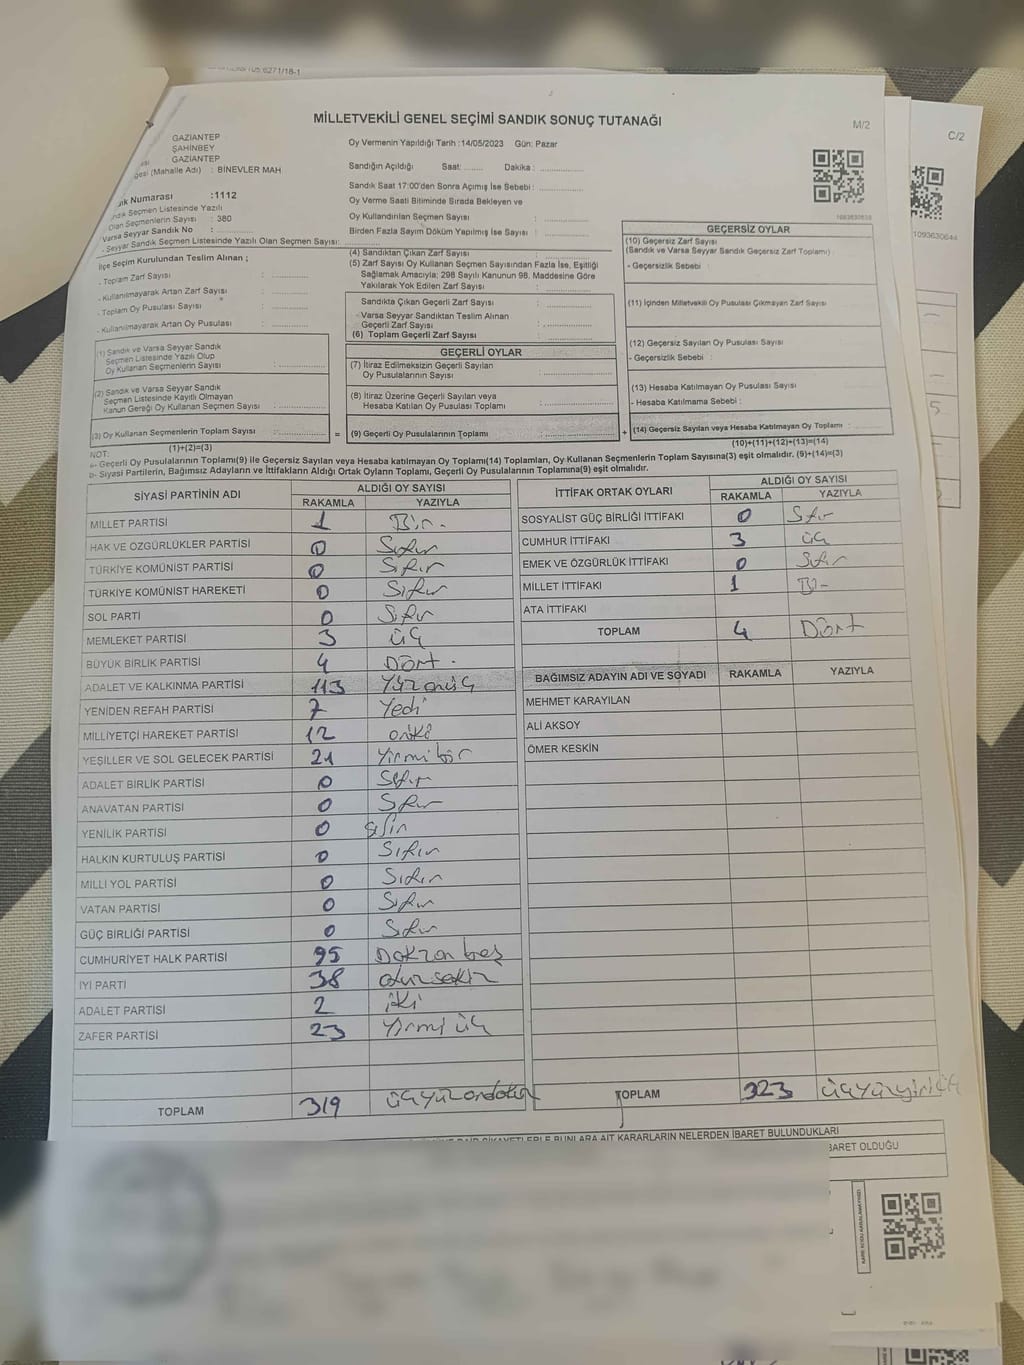 MİLLETVEKİLİ GENEL SEÇİMİ SANDIK SONUÇ TUTANAĞI
M/2
C/2
GAZİANTEP
ŞAHİNBEY
GAZİANTEP
(Mahalle Adı) : BİNEVLER MAH
Numarası :1112
Seçmen Listesinde Yazılı
Olan Seçmenlerin Sayısı : 380
Varsa Seyyar Sandık No :
- Seyyar Sandık Seçmen Listesinde Yazılı Olan Seçmen Sayısı:
Oy Vermenin Yapıldığı Tarih :14/05/2023 Gün: Pazar
Sandığın Açıldığı Saat: ........ Dakika :
Sandık Saat 17:00'den Sonra Açımış İse Sebebi :
Oy Verme Saati Bitiminde Sırada Bekleyen ve
Oy Kullandırılan Seçmen Sayısı :
Birden Fazla Sayım Döküm Yapılmış İse Sayısı :
İlçe Seçim Kurulundan Teslim Alınan ;
- Toplam Zarf Sayısı :
- Kullanılmayarak Artan Zarf Sayısı :
- Toplam Oy Pusulası Sayısı :
- Kullanılmayarak Artan Oy Pusulası :
(1) Sandık ve Varsa Seyyar Sandık
Seçmen Listesinde Yazılı Olup
Oy Kullanan Seçmenlerin Sayısı :
(2) Sandık ve Varsa Seyyar Sandık
Seçmen Listesinde Kayıtlı Olmayan
Kanun Gereği Oy Kullanan Seçmen Sayısı :
(3) Oy Kullanan Seçmenlerin Toplam Sayısı :
(1)+(2)=(3)
(4) Sandıktan Çıkan Zarf Sayısı :
(5) Zarf Sayısı Oy Kullanan Seçmen Sayısından Fazla İse, Eşitliği
Sağlamak Amacıyla; 298 Sayılı Kanunun 98. Maddesine Göre
Yakılarak Yok Edilen Zarf Sayısı :
Sandıkta Çıkan Geçerli Zarf Sayısı :
Varsa Seyyar Sandıktan Teslim Alınan
Geçerli Zarf Sayısı :
(6) Toplam Geçerli Zarf Sayısı :
GEÇERLİ OYLAR
(7) İtiraz Edilmeksizin Geçerli Sayılan
Oy Pusulalarının Sayısı :
(8) İtiraz Üzerine Geçerli Sayılan veya
Hesaba Katılan Oy Pusulası Toplamı :
= (9) Geçerli Oy Pusulalarının Toplamı : +
1093630644
GEÇERSİZ OYLAR
(10) Geçersiz Zarf Sayısı
(Sandık ve Varsa Seyyar Sandık Geçersiz Zarf Toplamı) :
- Geçersizlik Sebebi :
(11) İçinden Milletvekili Oy Pusulası Çıkmayan Zarf Sayısı
(12) Geçersiz Sayılan Oy Pusulası Sayısı :
- Geçersizlik Sebebi :
(13) Hesaba Katılmayan Oy Pusulası Sayısı :
- Hesaba Katılmama Sebebi :
(14) Geçersiz Sayılan veya Hesaba Katılmayan Oy Toplamı :
(10)+(11)+(12)+(13)=(14)
NOT:
a- Geçerli Oy Pusulalarının Toplamı(9) ile Geçersiz Sayılan veya Hesaba katılmayan Oy Toplamı(14) Toplamları, Oy Kullanan Seçmenlerin Toplam Sayısına(3) eşit olmalıdır. (9)+(14)=(3)
b- Siyasi Partilerin, Bağımsız Adayların ve İttifakların Aldığı Ortak Oyların Toplamı, Geçerli Oy Pusulalarının Toplamına(9) eşit olmalıdır.
SİYASİ PARTİNİN ADI ALDIĞI OY SAYISI
RAKAMLA YAZIYLA
MİLLET PARTİSİ 1 Bir.
HAK VE ÖZGÜRLÜKLER PARTİSİ 0 Sıfır
TÜRKİYE KOMÜNİST PARTİSİ 0 Sıfır
TÜRKİYE KOMÜNİST HAREKETİ 0 Sıfır
SOL PARTİ 0 Sıfır
MEMLEKET PARTİSİ 3 üç
BÜYÜK BİRLİK PARTİSİ 4 Dört.
ADALET VE KALKINMA PARTİSİ 113 Yüzonüç
YENİDEN REFAH PARTİSİ 7 Yedi
MİLLİYETÇİ HAREKET PARTİSİ 12 oniki
YEŞİLLER VE SOL GELECEK PARTİSİ 21 Yirmi bir
ADALET BİRLİK PARTİSİ 0 Sıfır
ANAVATAN PARTİSİ 0 Sıfır
YENİLİK PARTİSİ 0 Sıfır
HALKIN KURTULUŞ PARTİSİ 0 Sıfır
MİLLİ YOL PARTİSİ 0 Sıfır
VATAN PARTİSİ 0 Sıfır
GÜÇ BİRLİĞİ PARTİSİ 0 Sıfır
CUMHURİYET HALK PARTİSİ 95 Dokzan beş
İYİ PARTİ 38 otuzsekiz
ADALET PARTİSİ 2 iki
ZAFER PARTİSİ 23 Yirmi üç
TOPLAM 319 üçyüzondokuz
İTTİFAK ORTAK OYLARI ALDIĞI OY SAYISI
RAKAMLA YAZIYLA
SOSYALİST GÜÇ BİRLİĞİ İTTİFAKI 0 Sıfır
CUMHUR İTTİFAKI 3 üç
EMEK VE ÖZGÜRLÜK İTTİFAKI 0 Sıfır
MİLLET İTTİFAKI 1 Bir
ATA İTTİFAKI
TOPLAM 4 Dört
BAĞIMSIZ ADAYIN ADI VE SOYADI RAKAMLA YAZIYLA
MEHMET KARAYILAN
ALİ AKSOY
ÖMER KESKİN
TOPLAM 323
KARARLARIN NELERDEN İBARET BULUNDUKLARI
İBARET OLDUĞU